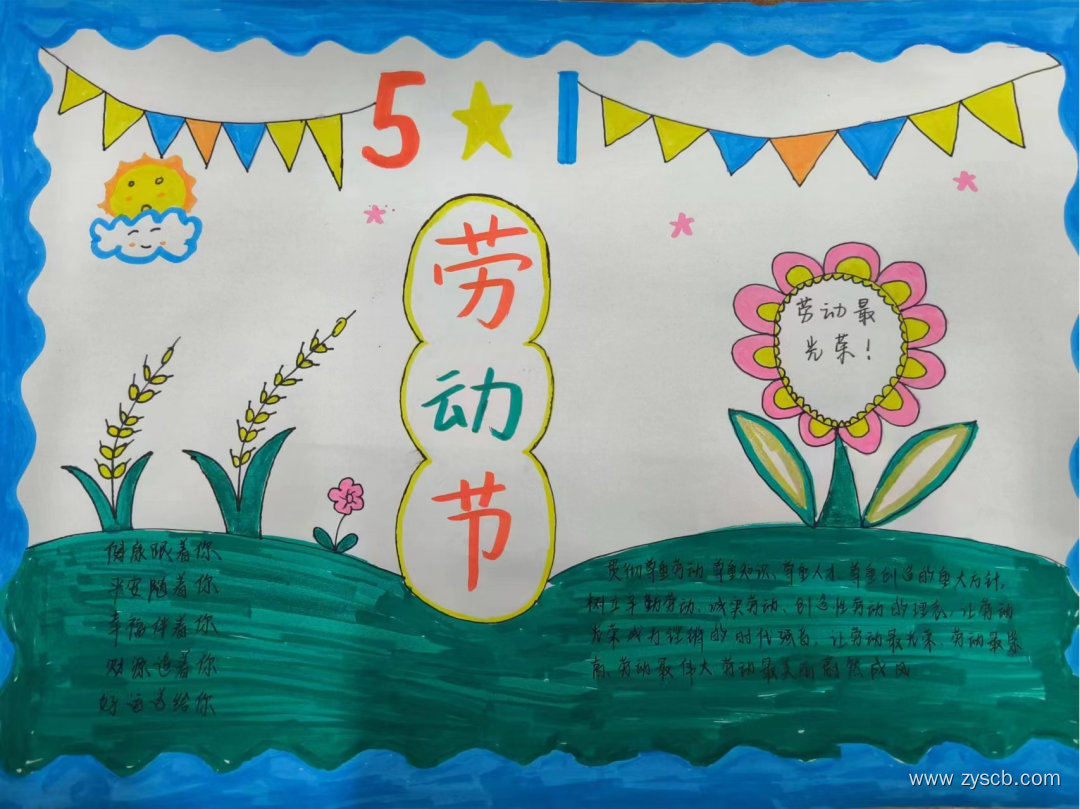 5 ★ 1
劳
动
节
劳动最
光荣！
健康跟着你
平安随着你
幸福伴着你
财源追着你
好运送给你
贯彻尊重劳动 尊重知识、尊重人才、尊重创造的重大方针，
树立辛勤劳动、诚实劳动、创造性劳动的理念，让劳动
光荣成为铿锵的时代强音，让劳动最光荣、劳动最崇
高、劳动最伟大 劳动最美丽蔚然成风
www.zyscb.com